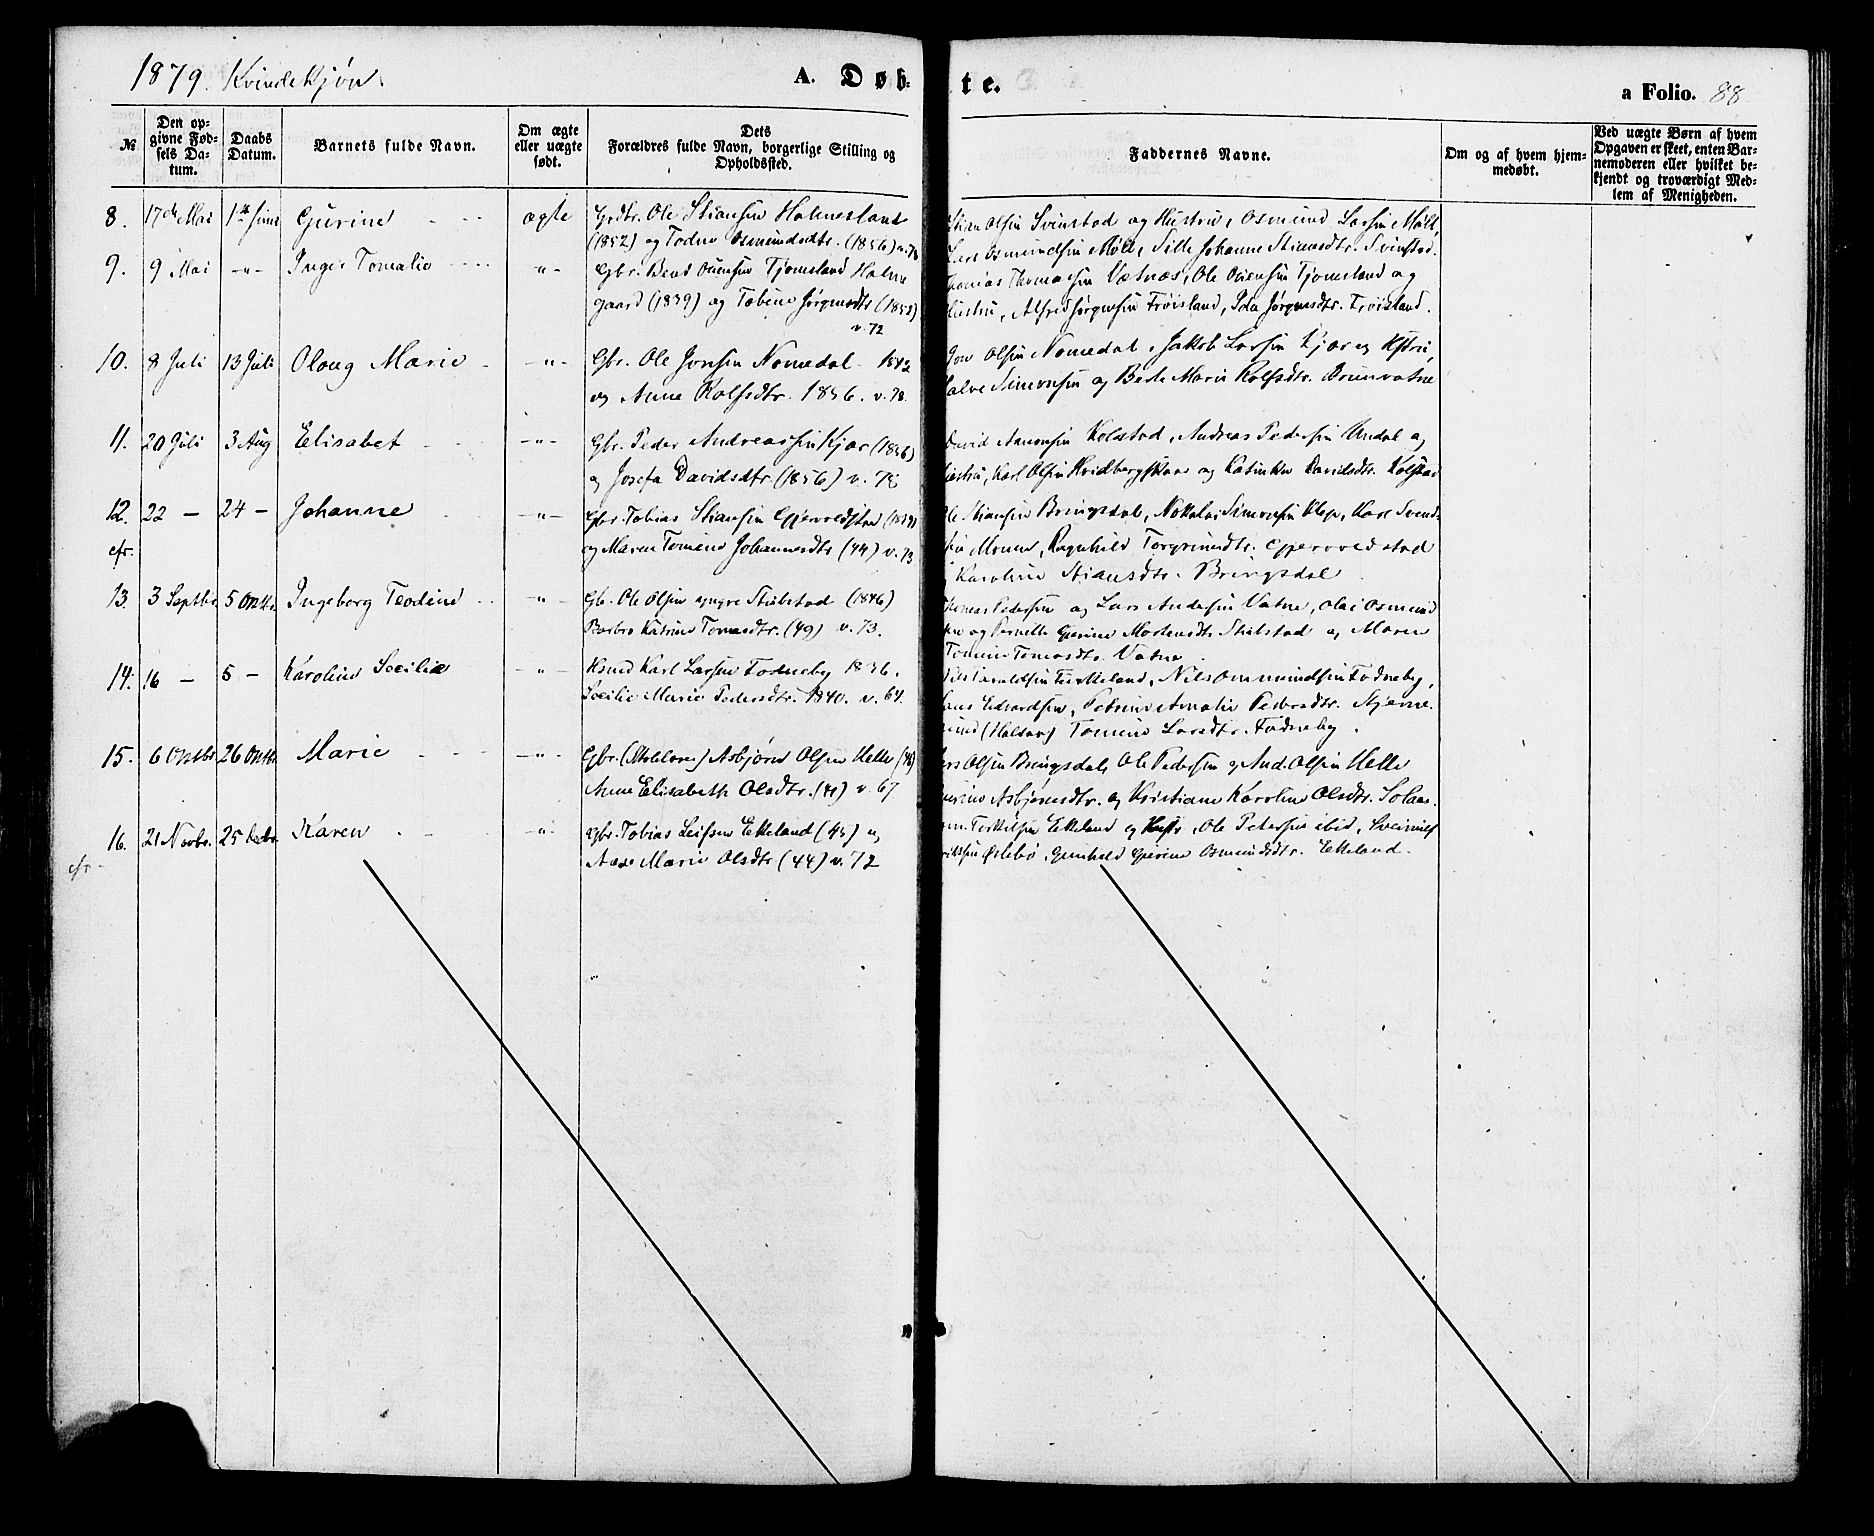 1879. Kvindekjøn.
A. Døb-
te.
a Folio. 88
№
Den op-
givne Fød-
sels Da-
tum.
Daabs
Datum.
Barnets fulde Navn.
Om ægte
eller uægte
født.
Dets
Forældres fulde Navn, borgerlige Stilling og
Opholdssted.
Faddernes Navne.
Om og af hvem hjem-
medøbt.
Ved uægte Børn af hvem
Opgaven er skeet, enten Bar-
nemoderen eller hvilket be-
kjendt og troværdigt Med-
lem af Menigheden.
8. 17de Mai 1ste Juni Gurine ægte Grdbr. Ole Stiansen Holmesland
(1852) og Todne Osmundsdtr. (1856) v. 78
Stian Olsen Svinstad og Hustru, Osmund Larsen Møll,
Lars Osmundsen Møll, Sille Johanne Stiansdtr. Svinstad.
9. 9 Mai -"- Inger Tomalie -"- Gbr. Bend Tjomsland Holme
gaard (1839) og Tobine Jørgensdtr (1852)
v. 72
Thomas Thomassen Vatnæs, Ole Tjomsland og
Hustru, Alfred Jørgensen Frøisland, Ida Jørgensdtr. Frøisland.
10. 8 Juli 13 Juli Olaug Marie -"- Gbr. Ole Jonsen Nomedal 1842
og Anne Rolfsdtr. 1856. v. 78.
Jon Olsen Nomedal, Jakob Larsen Kjær og Hstru,
Salve Simonsen og Berte Marie Rolfsdtr. Brunvatne
11. 20 Juli 3 Aug Elisabet -"- Gbr. Peder Andreassen Kjær (1856)
og Josefa Davidsdtr. (1856) v. 78
David Aanonsen Kolstad, Andreas Pedersen Undal og
Hustru, Karl Olsen Hvidbergskaar og Katinka Davidsdtr. Kolstad
12. 22 - 24 - Johanne -"- Gbr. Tobias Stiansen Gjervoldstad
cfr. og Maren Tomine Johannesdtr (44) v. 73
Ole Stiansen Bringsdal, Nikolai Simonsen Klep, Karl Svend-
sen Monen, Ragnhild Torgrimsdtr. Gjervoldstad
Karoline Stiansdtr. Bringsdal.
13. 3 Septbr. 5 Oktbr. Ingeborg Teodine -"- Gb. Ole Olsen yngre Stubstad (1846)
Barbro Katrine Tomasdtr. (49) v. 73.
Thomas Pedersen og Lars Andersen Vatne, Olai Osmund
sen og Pernille Gurine Mortensdtr. Stubstad og Maren
Tomine Tomasdtr. Vatne.
14. 16 - 5 - Karoline Secilie -"- Hsmd Karl Larsen Fodneby 1836.
Secilie Marie Pedersdtr. 1840. v. 64.
Nils Ommundsen Fodneby,
Edvardsen, Petrine Amalie Pedersdtr. Stjerne.
sund (Halsaa) Tomine Larsdtr. Fodneby.
15. 6 Oktbr. 26 Oktbr. Marie -"- Gbr. Asbjørn Olsen Helle
Anne Elisabeth Olsdtr. (41) v. 67
Lars Olsen Bringsdal, Ole Pedersen og And. Olsen Helle
Asbjørnsdtr. og Kristiane Karoline Olsdtr. Solaas.
16. 21 Novbr. 25 Decbr. Karen -"- Gbr. Tobias Leifsen Ekeland (45) og
cfr. Aase Marie Olsdtr (44) v. 72
Terkelsen Ekeland og Hustr, Ole Petersen ibid,
Øslebø, Gunhild Gurine Osmundsdtr. Ekeland.